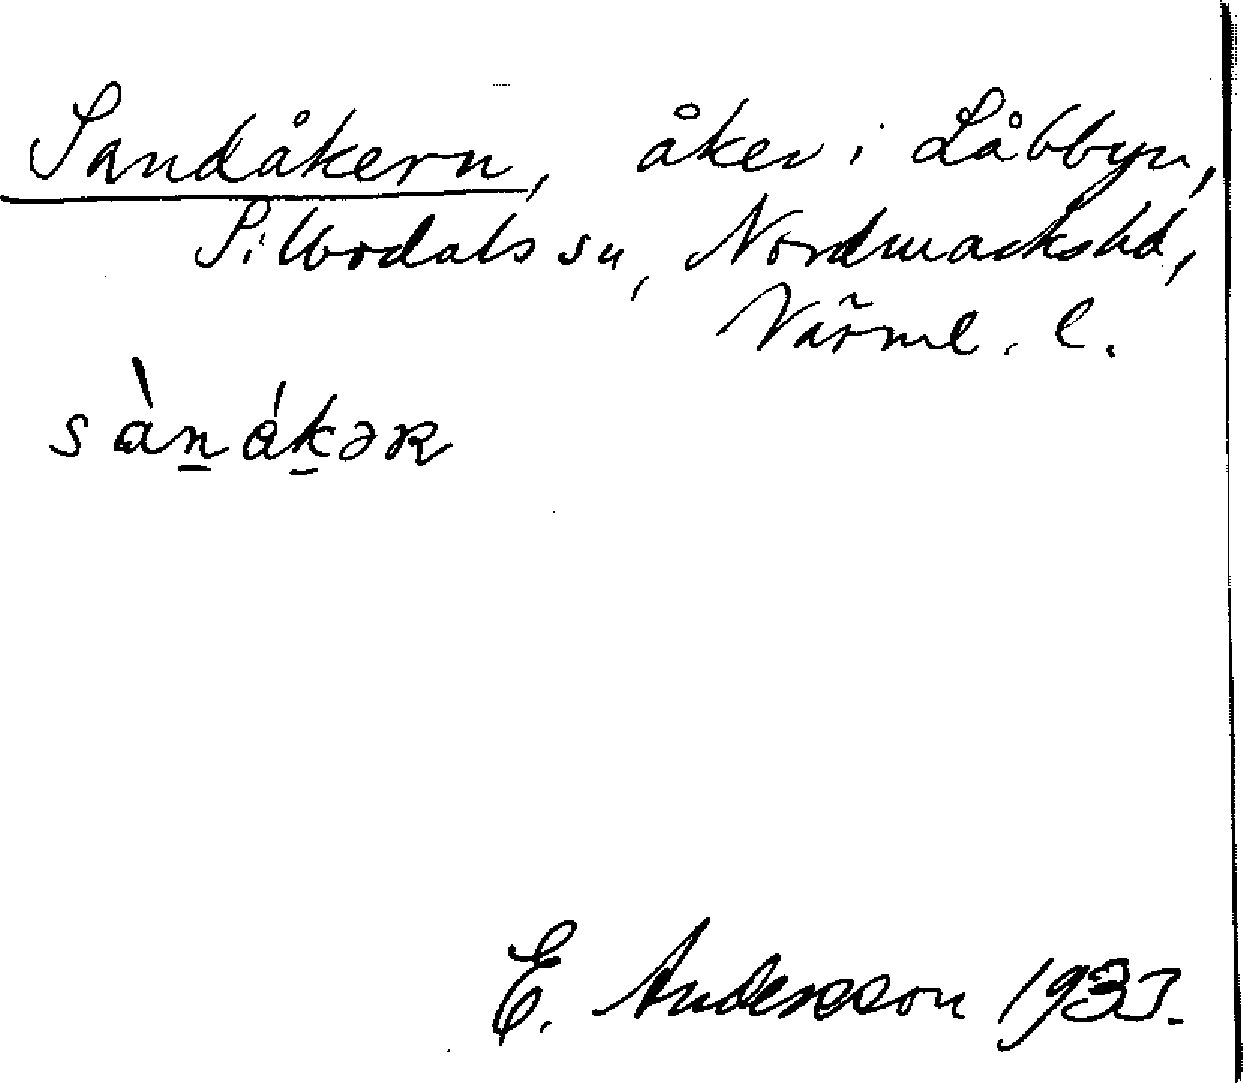 Sandåkern, åker i Låbbyn,
Silbodals sn, Nordmarks hd,
Värml. l.
sànákəʀ
E. Andersson 1933.